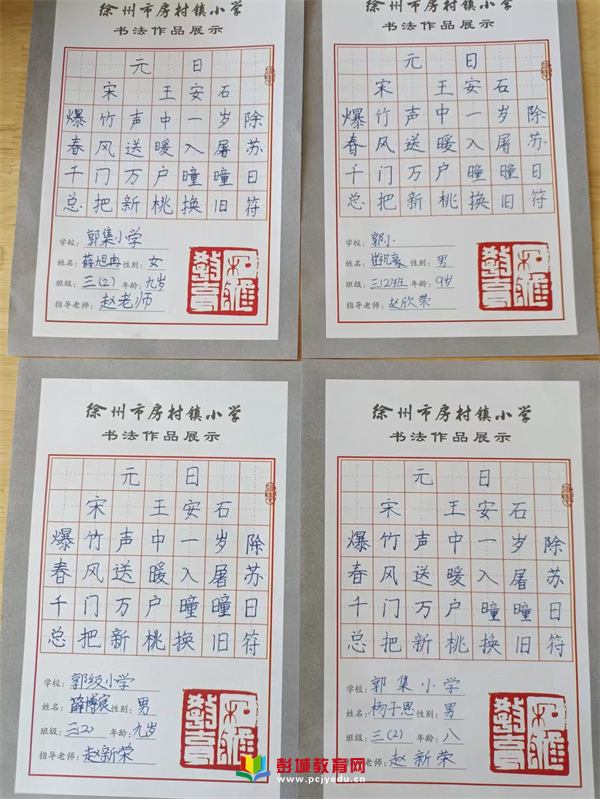 徐州市房村镇小学
书法作品展示
元日
宋 王安石
爆竹声中一岁除
春风送暖入屠苏
千门万户曈曈日
总把新桃换旧符
学校：郭集小学
姓名：薛旭冉 性别：女
班级：三(2) 年龄：九岁
指导老师：赵老师
徐州市房村镇小学
书法作品展示
元日
宋 王安石
爆竹声中一岁除
春风送暖入屠苏
千门万户曈曈日
总把新桃换旧符
学校：郭小
姓名： 性别：男
班级：三(2)班 年龄：9岁
指导老师：赵欣荣
徐州市房村镇小学
书法作品展示
元日
宋 王安石
爆竹声中一岁除
春风送暖入屠苏
千门万户曈曈日
总把新桃换旧符
学校：郭级小学
姓名：薛博宸 性别：男
班级：三(2) 年龄：九岁
指导老师：赵新荣
徐州市房村镇小学
书法作品展示
元日
宋 王安石
爆竹声中一岁除
春风送暖入屠苏
千门万户曈曈日
总把新桃换旧符
学校：郭集小学
姓名：杨子恩 性别：男
班级：三(2) 年龄：八
指导老师：赵新荣
彭城教育网
www.pcjyedu.cn